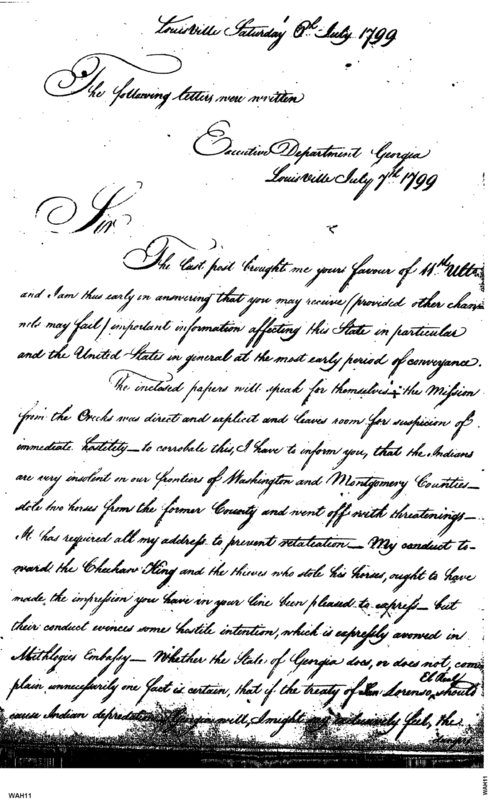 Louisville Saturday 6th July 1799
The following letters were written
Executive Department Georgia
Louisville July 7th 1799
Sir
The last post brought me yours favour of 11th Ulto
and I am thus early in answering that you may receive (provided other chan
nels may fail) important information affecting this State in particular
and the United States in general at the most early period of conveyance.
The inclosed papers will speak for themselves the Mission
from the Creeks was direct and explicit and leaves room for suspicion of
immediate hostility — to corrobate this, I have to inform you, that the Indians
are very insolent on our frontiers of Washington and Montgomery Counties —
stole two horses from the former County and went off with threatenings —
It has required all my address to prevent retaliation — My conduct to-
ward the Cheehaw King and the thieves who stole his horses, ought to have
made the impression you have in your line been pleased to express — but
their conduct evinces some hostile intention, which is expressly avowed in
Methlogies Embassy — Whether the State of Georgia does, or does not, com
plain unnecessarily one fact is certain, that if the treaty of San Lorenso, should
El Real
cause Indian depredation Georgia will, I might say exclusively feel, the
WAH11
WAH11